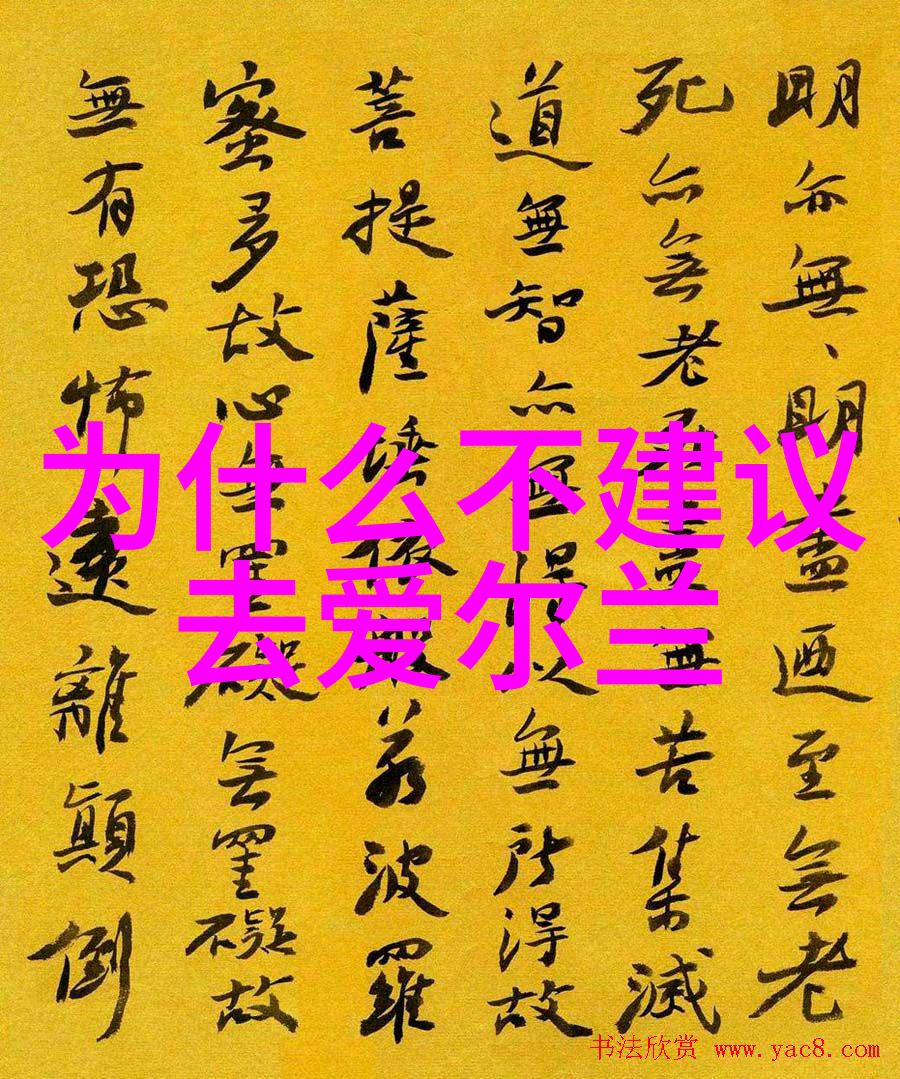 明亦無、明盡迺至無老
死亦無老死盡無苦集滅
道無智亦無得以無所得故
菩提薩埵依般若波羅
蜜多故心無罣礙無罣礙故
無有恐怖遠離顛倒
为什么不建议
去爱尔兰
书法欣赏 www.yac8.com